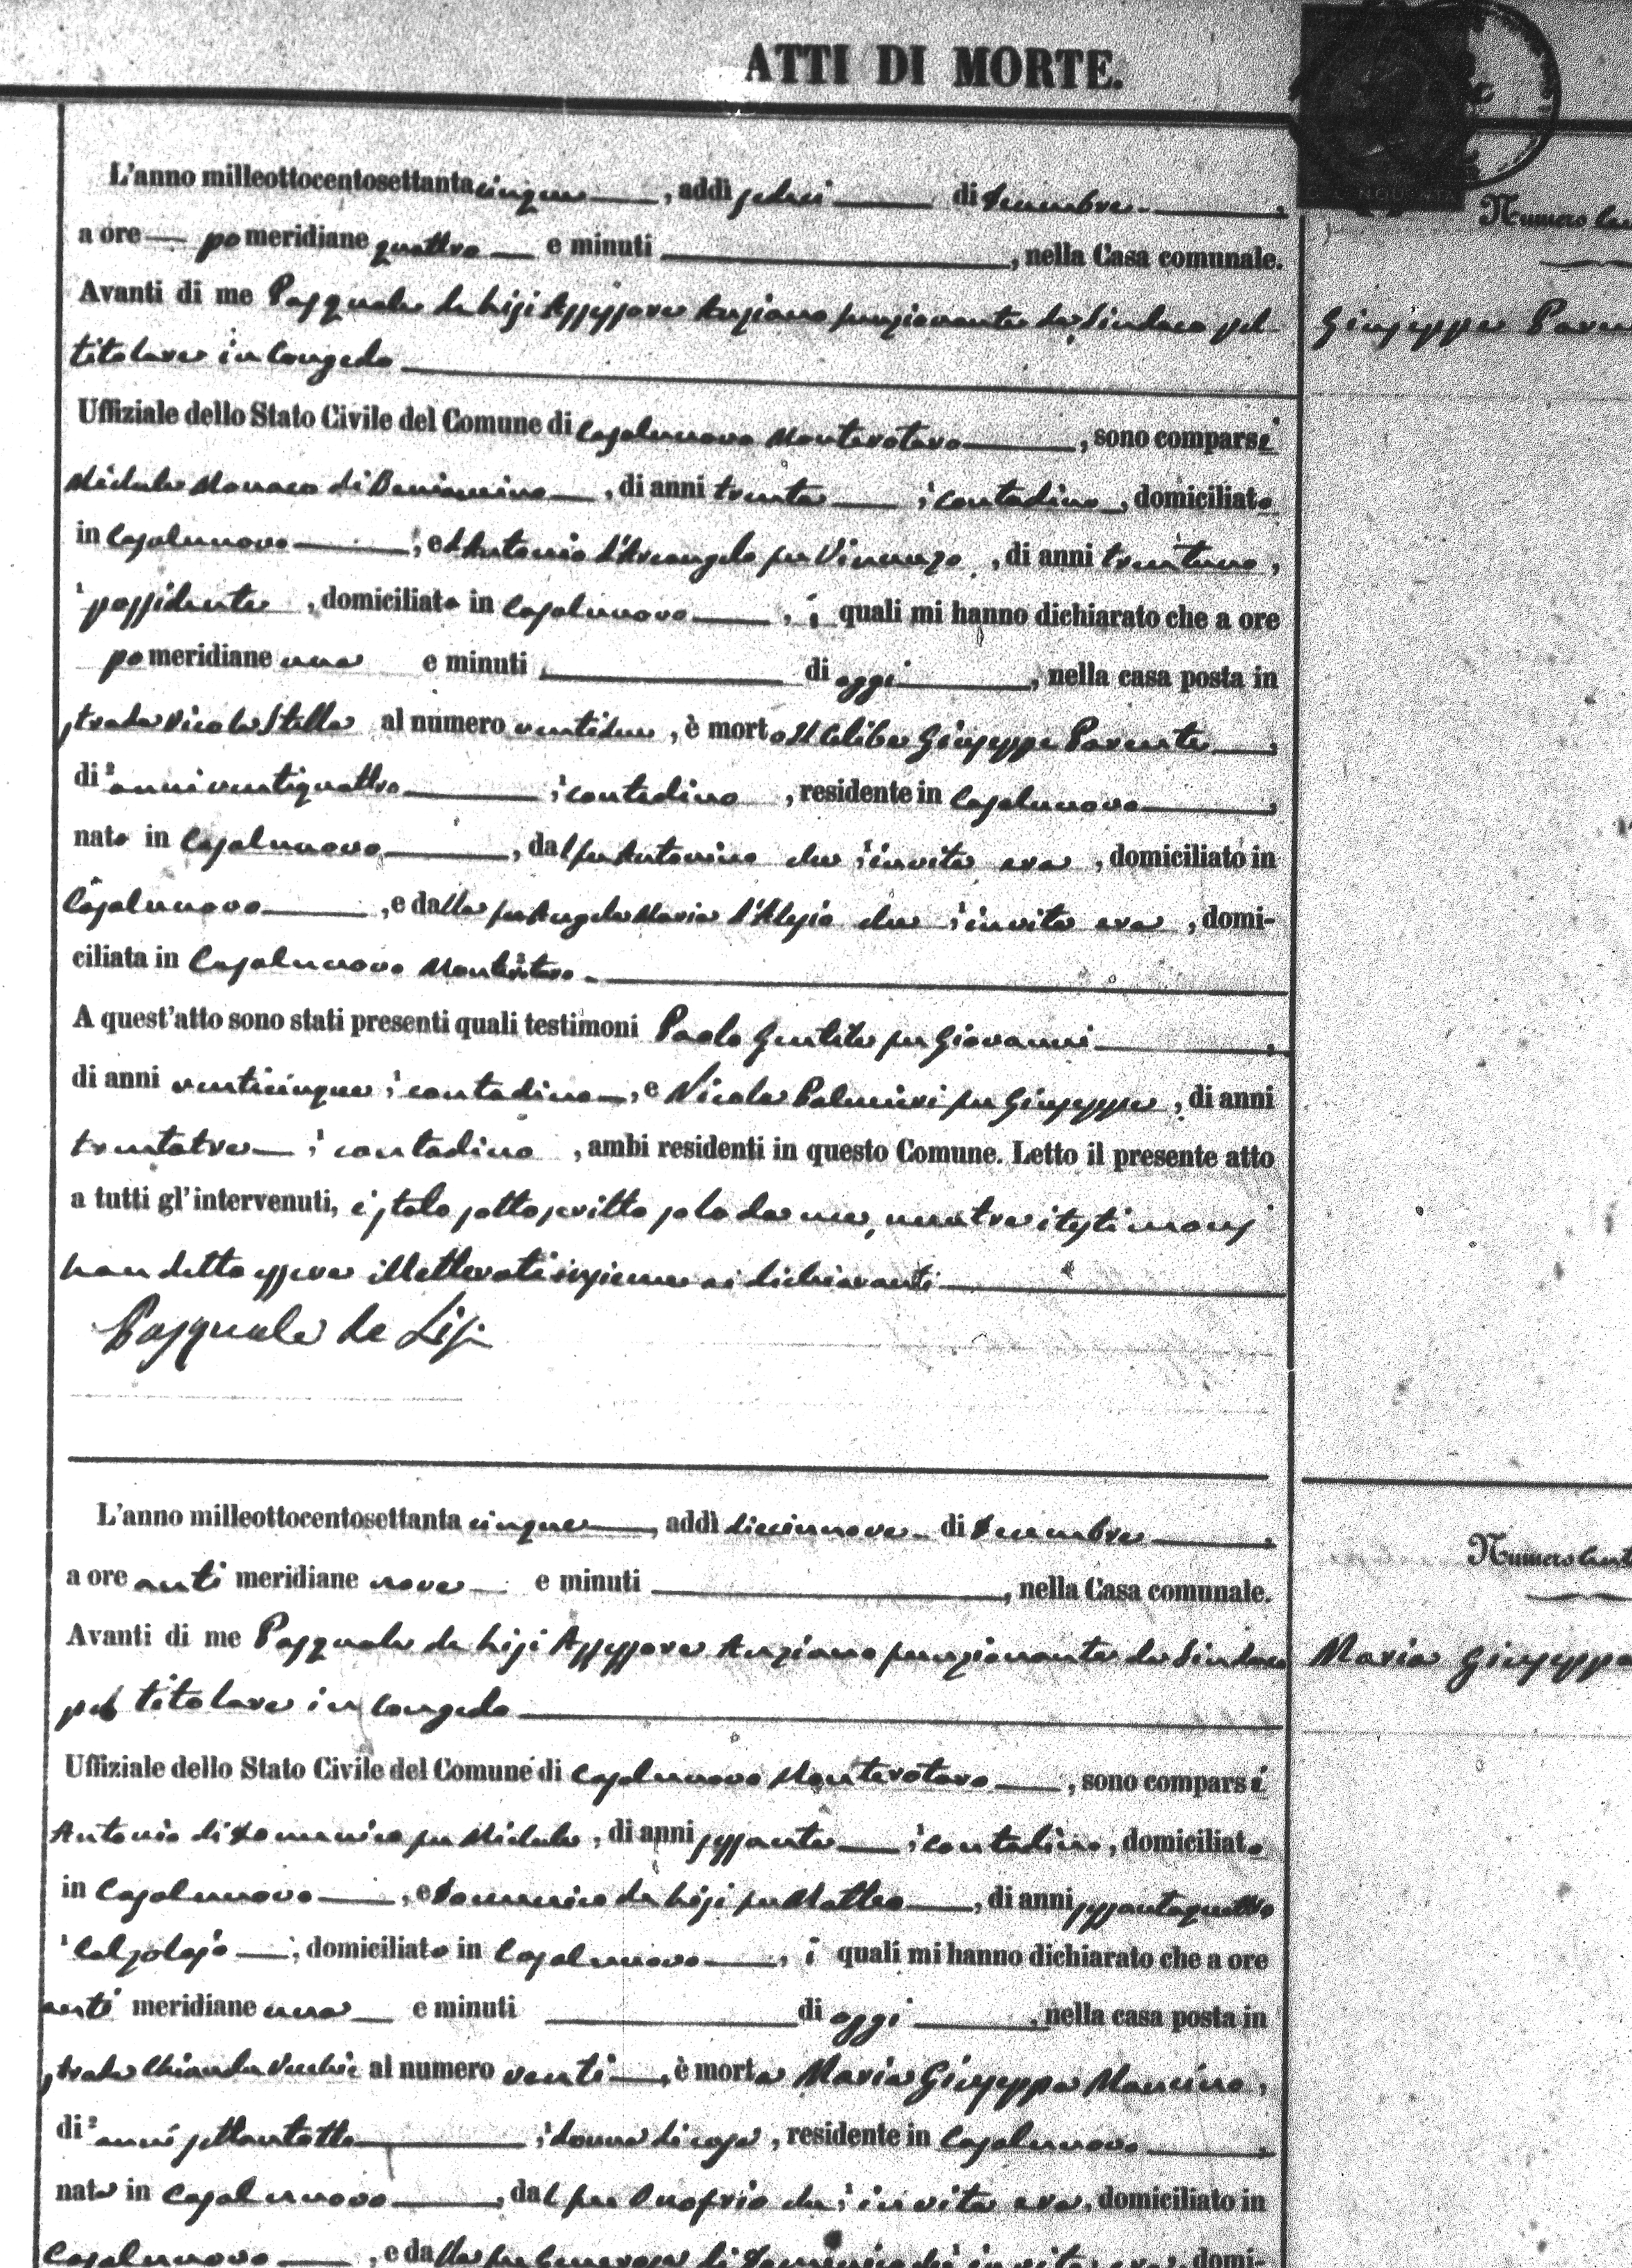 ATTI DI MORTE.
L'anno milleottocentosettanta cinque, addì sedici di Decembre,
a ore pomeridiane quattro e minuti , nella Casa comunale.
Avanti di me Pasquale de Lisi Assessore Anziano funzionante da Sindaco pel
titolare in congedo
Uffiziale dello Stato Civile del Comune di Casalnuovo Monterotaro, sono comparsi
Michele Monaco di Beniamino, di anni trenta, contadino, domiciliato
in Casalnuovo, ed Antonio d'Arcangelo fu Vincenzo, di anni trentuno,
possidente, domiciliato in Casalnuovo, i quali mi hanno dichiarato che a ore
pomeridiane una e minuti di oggi, nella casa posta in
strada Vico la Stella al numero ventidue, è morto il Celibe Giuseppe Parente,
di anni ventiquattro, contadino, residente in Casalnuovo,
nato in Casalnuovo, dal fu Antonino che in vita era, domiciliato in
Casalnuovo, e dalla fu Angela Maria d'Alesio che in vita era, domi-
ciliata in Casalnuovo Monterotaro.
A quest'atto sono stati presenti quali testimoni Paolo Gentile fu Giovanni,
di anni venticinque, contadino, e Nicola Palmieri fu Giuseppe, di anni
trentatre, contadino, ambi residenti in questo Comune. Letto il presente atto
a tutti gl'intervenuti, è stato sottoscritto solo da me, mentre i testimonj
han detto essere illetterati insieme ai dichiaranti
Pasquale de Lisi
L'anno milleottocentosettanta cinque, addì diecinnove di Decembre,
a ore antimeridiane nove e minuti , nella Casa comunale.
Avanti di me Pasquale de Lisi Assessore Anziano funzionante da Sindaco
pel titolare in congedo
Uffiziale dello Stato Civile del Comune di Casalnuovo Monterotaro, sono comparsi
Antonio di Domenico fu Michele, di anni sessanta, contadino, domiciliato
in Casalnuovo, e Domenico de Lisi fu Matteo, di anni sessantaquattro
Calzolajo, domiciliato in Casalnuovo, i quali mi hanno dichiarato che a ore
antimeridiane una e minuti di oggi, nella casa posta in
strada Vecchie al numero venti, è morta Maria Giuseppa Mancino,
di anni settantotto, donna di casa, residente in Casalnuovo,
nata in Casalnuovo, dal fu Onofrio che in vita era, domiciliato in
Casalnuovo, e dalla fu di Domenico che in vita era, domi-
Numero
Giuseppe
Numero
Maria Giuseppa